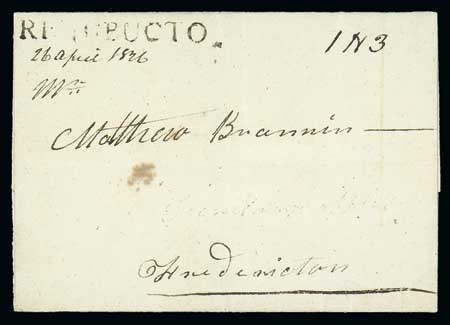 RICHIBUCTO.
1 N 3
26 April 1826
Mr.
Matthew Brannin
Fredericton